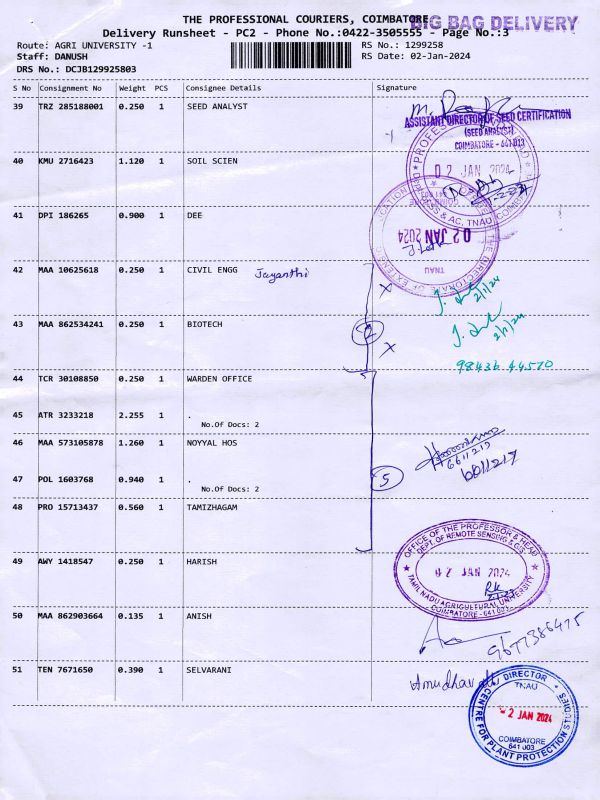 THE PROFESSIONAL COURIERS, COIMBATORE
BIG BAG DELIVERY
Delivery Runsheet - PC2 - Phone No.:0422-3505555 - Page No.:3
Route: AGRI UNIVERSITY -1
RS No.: 1299258
Staff: DANUSH
RS Date: 02-Jan-2024
DRS No.: DCJB129925803
S No Consignment No Weight PCS Consignee Details Signature
39 TRZ 285188001 0.250 1 SEED ANALYST
ASSISTANT DIRECTOR OF SEED CERTIFICATION
(SEED ANALYST)
COIMBATORE - 641 013
02 JAN 2024
40 KMU 2716423 1.120 1 SOIL SCIEN
41 DPI 186265 0.900 1 DEE
02 JAN 2024
TNAU
42 MAA 10625618 0.250 1 CIVIL ENGG Jayanthi
2/1/24
43 MAA 862534241 0.250 1 BIOTECH
2
2/1/24
98436 44570
44 TCR 30108850 0.250 1 WARDEN OFFICE
45 ATR 3233218 2.255 1 .
No.Of Docs: 2
46 MAA 573105878 1.260 1 NOYYAL HOS
6611217
47 POL 1603768 0.940 1 .
No.Of Docs: 2
5
48 PRO 15713437 0.560 1 TAMIZHAGAM
OFFICE OF THE PROFESSOR & HEAD
DEPT. OF REMOTE SENSING & GIS
49 AWY 1418547 0.250 1 HARISH
02 JAN 2024
TAMIL NADU AGRICULTURAL UNIVERSITY
COIMBATORE - 641 003
50 MAA 862903664 0.135 1 ANISH
9677386475
51 TEN 7671650 0.390 1 SELVARANI
DIRECTOR
TNAU
- 2 JAN 2024
COIMBATORE
641 003
CENTRE FOR PLANT PROTECTION STUDIES